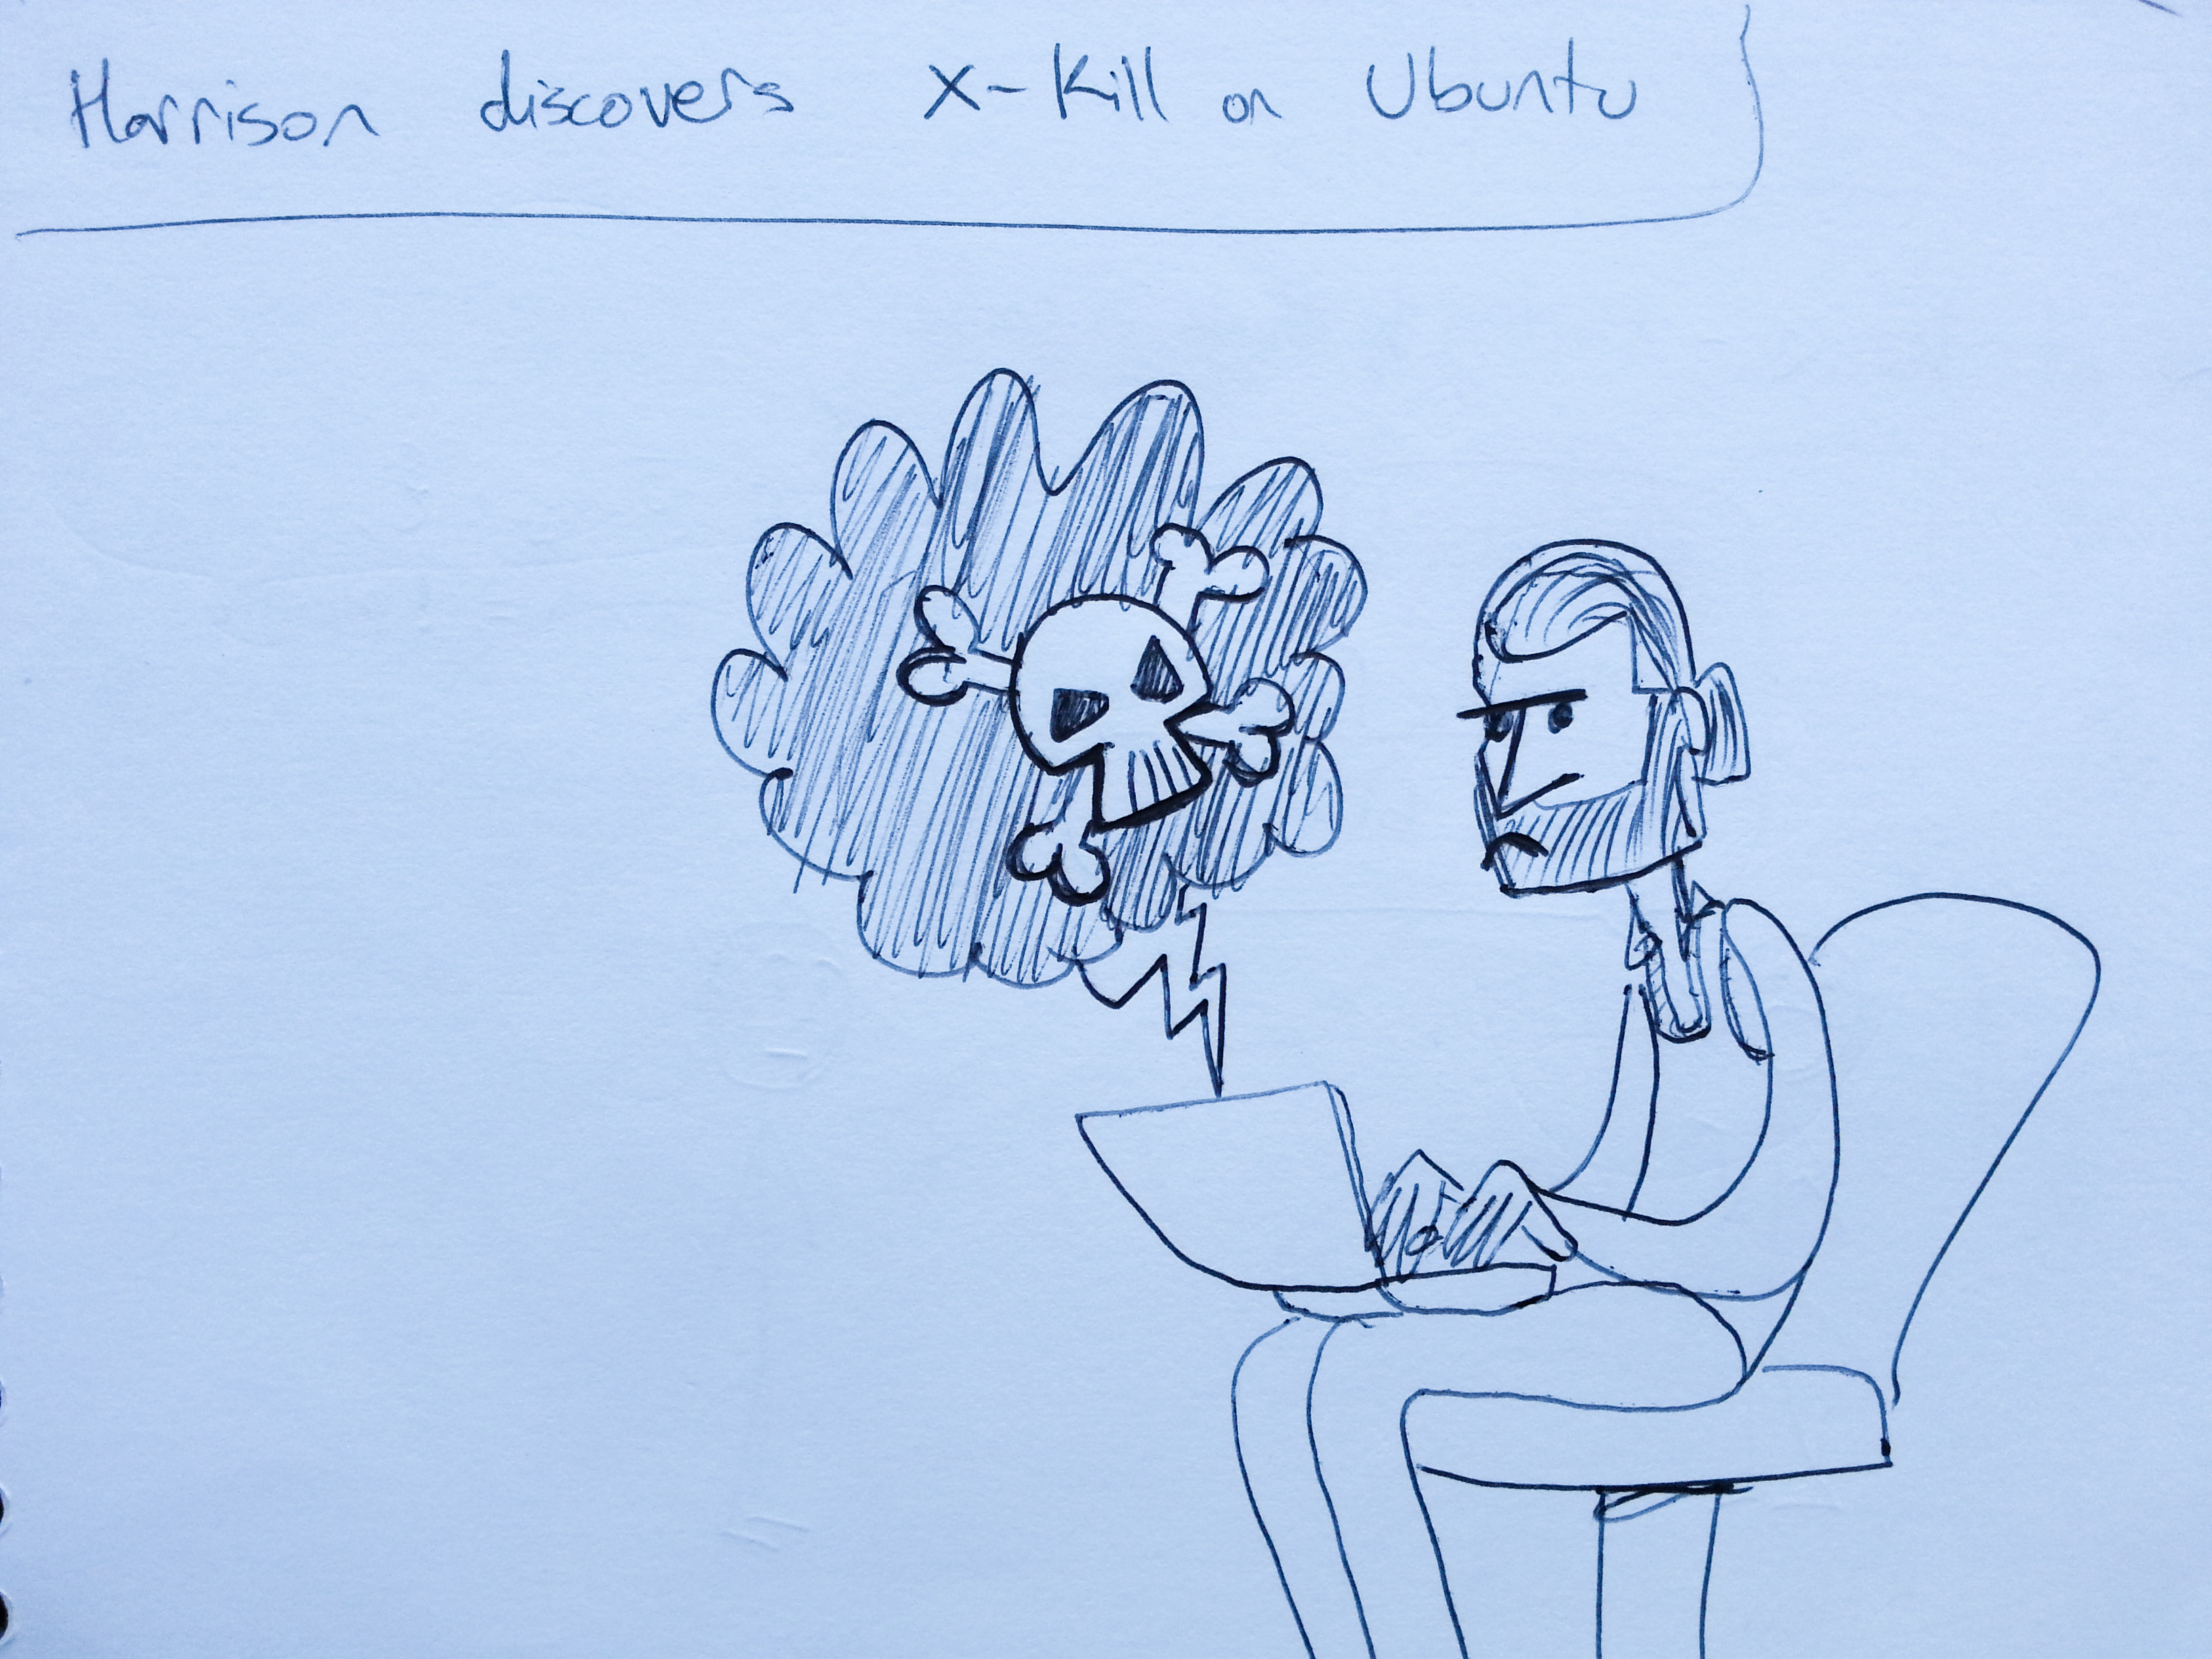 Harrison discovers X-Kill on Ubuntu